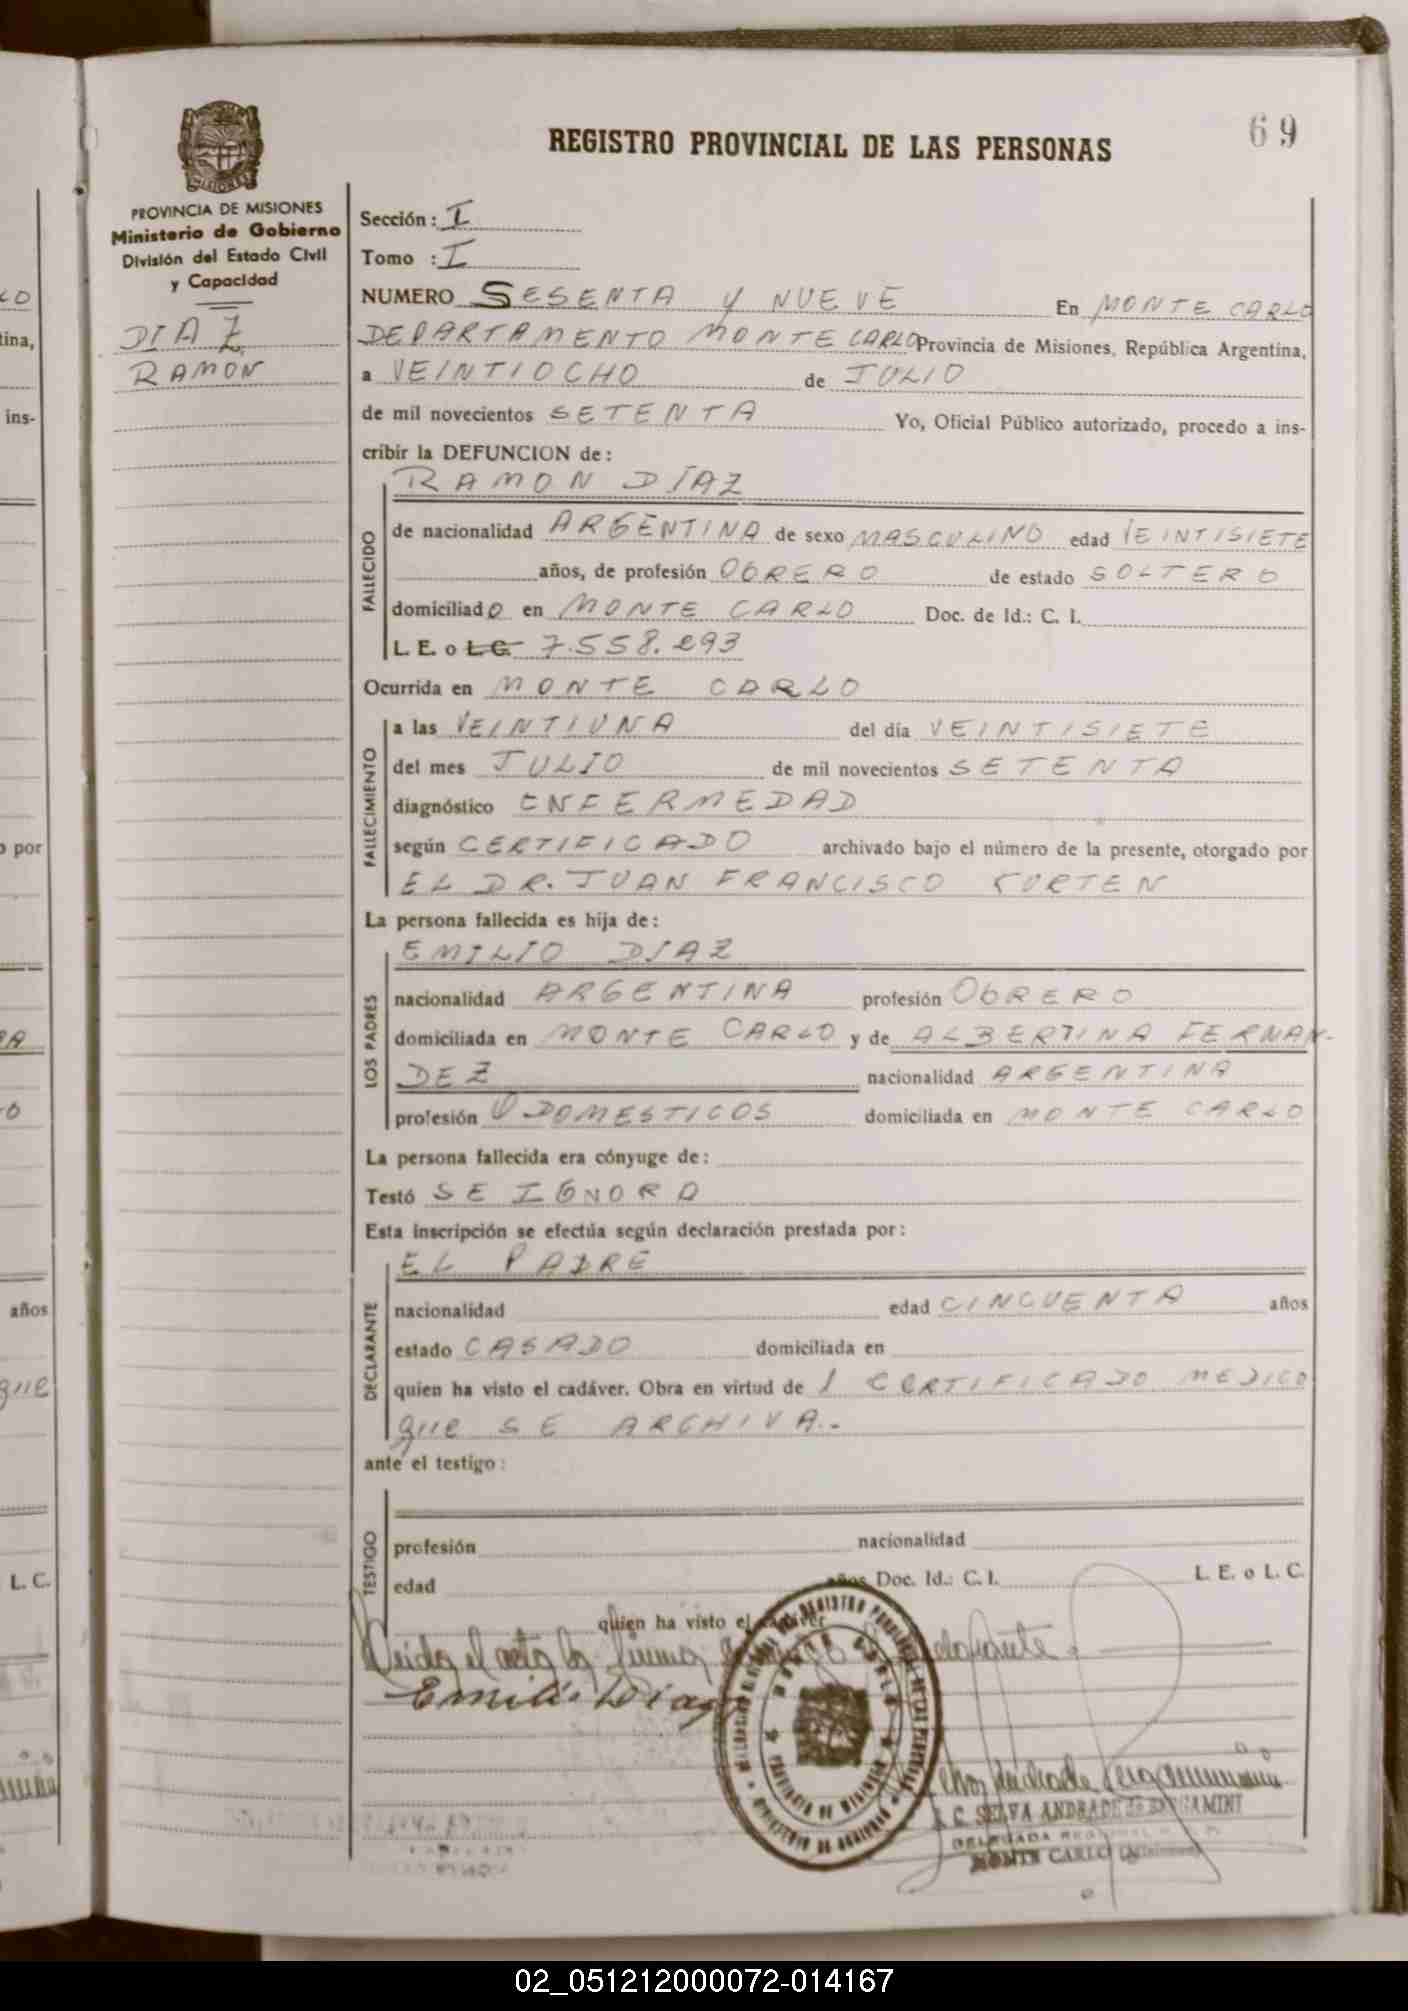 REGISTRO PROVINCIAL DE LAS PERSONAS
69
PROVINCIA DE MISIONES
Ministerio de Gobierno
División del Estado Civil
y Capacidad
DIAZ
RAMON
Sección: I
Tomo : I
NUMERO SESENTA Y NUEVE En MONTE CARLO
DEPARTAMENTO MONTE CARLO Provincia de Misiones, República Argentina,
a VEINTIOCHO de JULIO
de mil novecientos SETENTA Yo, Oficial Público autorizado, procedo a ins-
cribir la DEFUNCION de:
RAMON DÍAZ
FALLECIDO
de nacionalidad ARGENTINA de sexo MASCULINO edad VEINTISIETE
años, de profesión OBRERO de estado SOLTERO
domiciliado en MONTE CARLO Doc. de Id.: C. I.
L. E. o L.C. 7.558.293
Ocurrida en MONTE CARLO
FALLECIMIENTO
a las VEINTIUNA del día VEINTISIETE
del mes JULIO de mil novecientos SETENTA
diagnóstico ENFERMEDAD
según CERTIFICADO archivado bajo el número de la presente, otorgado por
EL DR. JUAN FRANCISCO KURTEN
La persona fallecida es hija de:
EMILIO DIAZ
LOS PADRES
nacionalidad ARGENTINA profesión OBRERO
domiciliada en MONTE CARLO y de ALBERTINA FERNAN-
DEZ nacionalidad ARGENTINA
profesión Q DOMESTICOS domiciliada en MONTE CARLO
La persona fallecida era cónyuge de:
Testó SE IGNORA
Esta inscripción se efectúa según declaración prestada por:
EL PADRE
DECLARANTE
nacionalidad edad CINCUENTA años
estado CASADO domiciliada en
quien ha visto el cadáver. Obra en virtud de 1 CERTIFICADO MEDICO
que SE ARCHIVA.-
ante el testigo:
TESTIGO
profesión nacionalidad
edad años Doc. Id.: C. I. L. E. o L. C.
quien ha visto el cadáver
Leida el acta la firma
Emilio Diaz
MONTE CARLO
PROVINCIA DE MISIONES
SELVA ANDRADE DE BERGAMINI
DELEGADA
MONTE CARLO (Misiones)
tina,
ins-
o por
años
que
L. C.
02_051212000072-014167